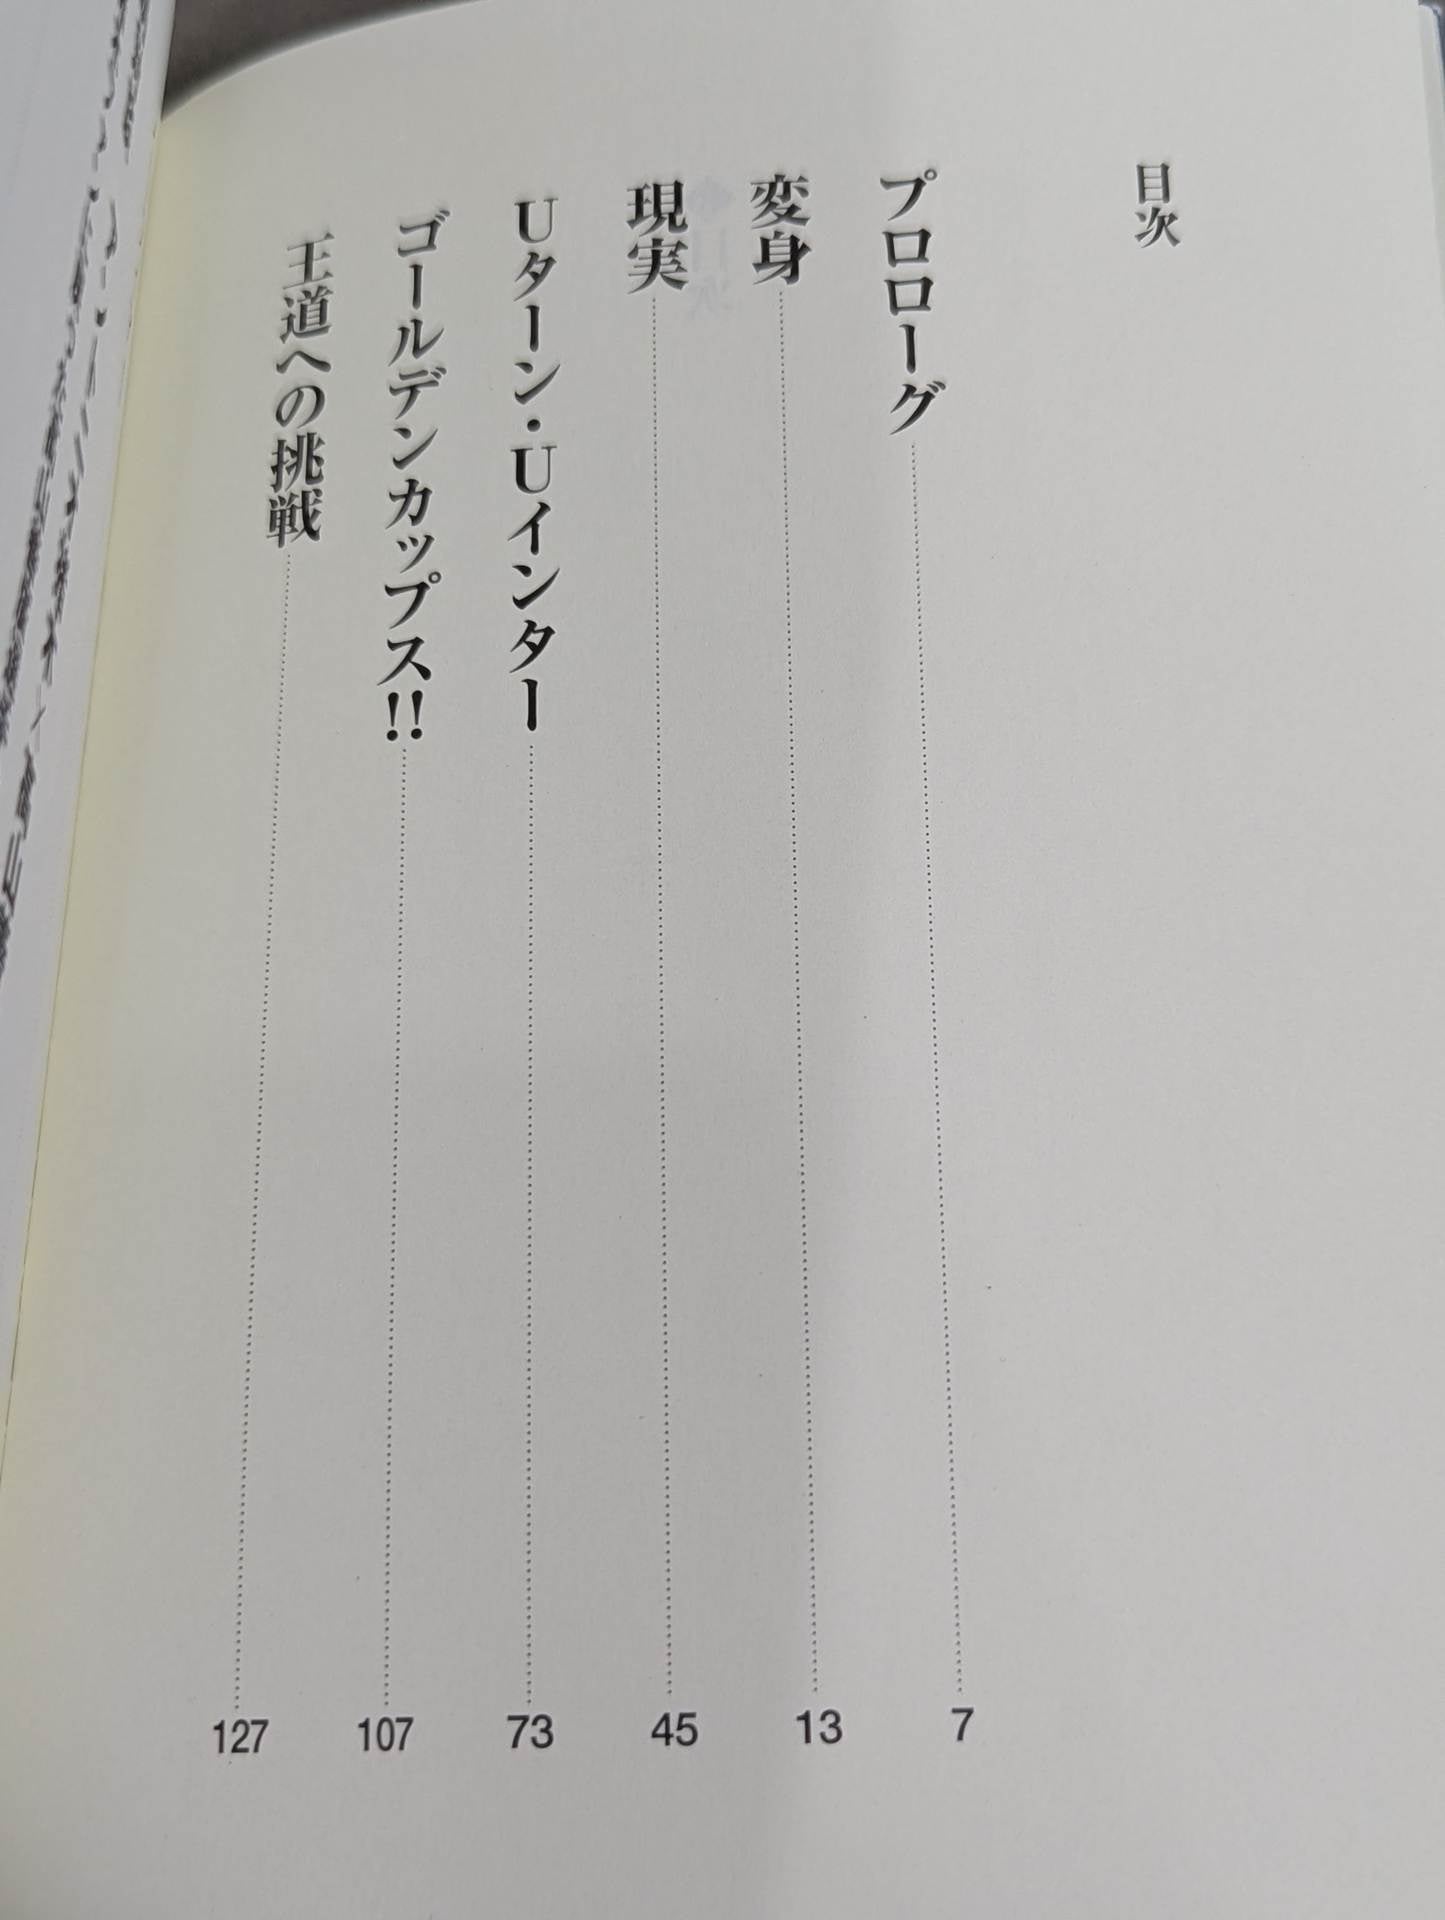 目次
プロローグ 7
変身 13
現実 45
Uターン・Uインター 73
ゴールデンカップス!! 107
王道への挑戦 127